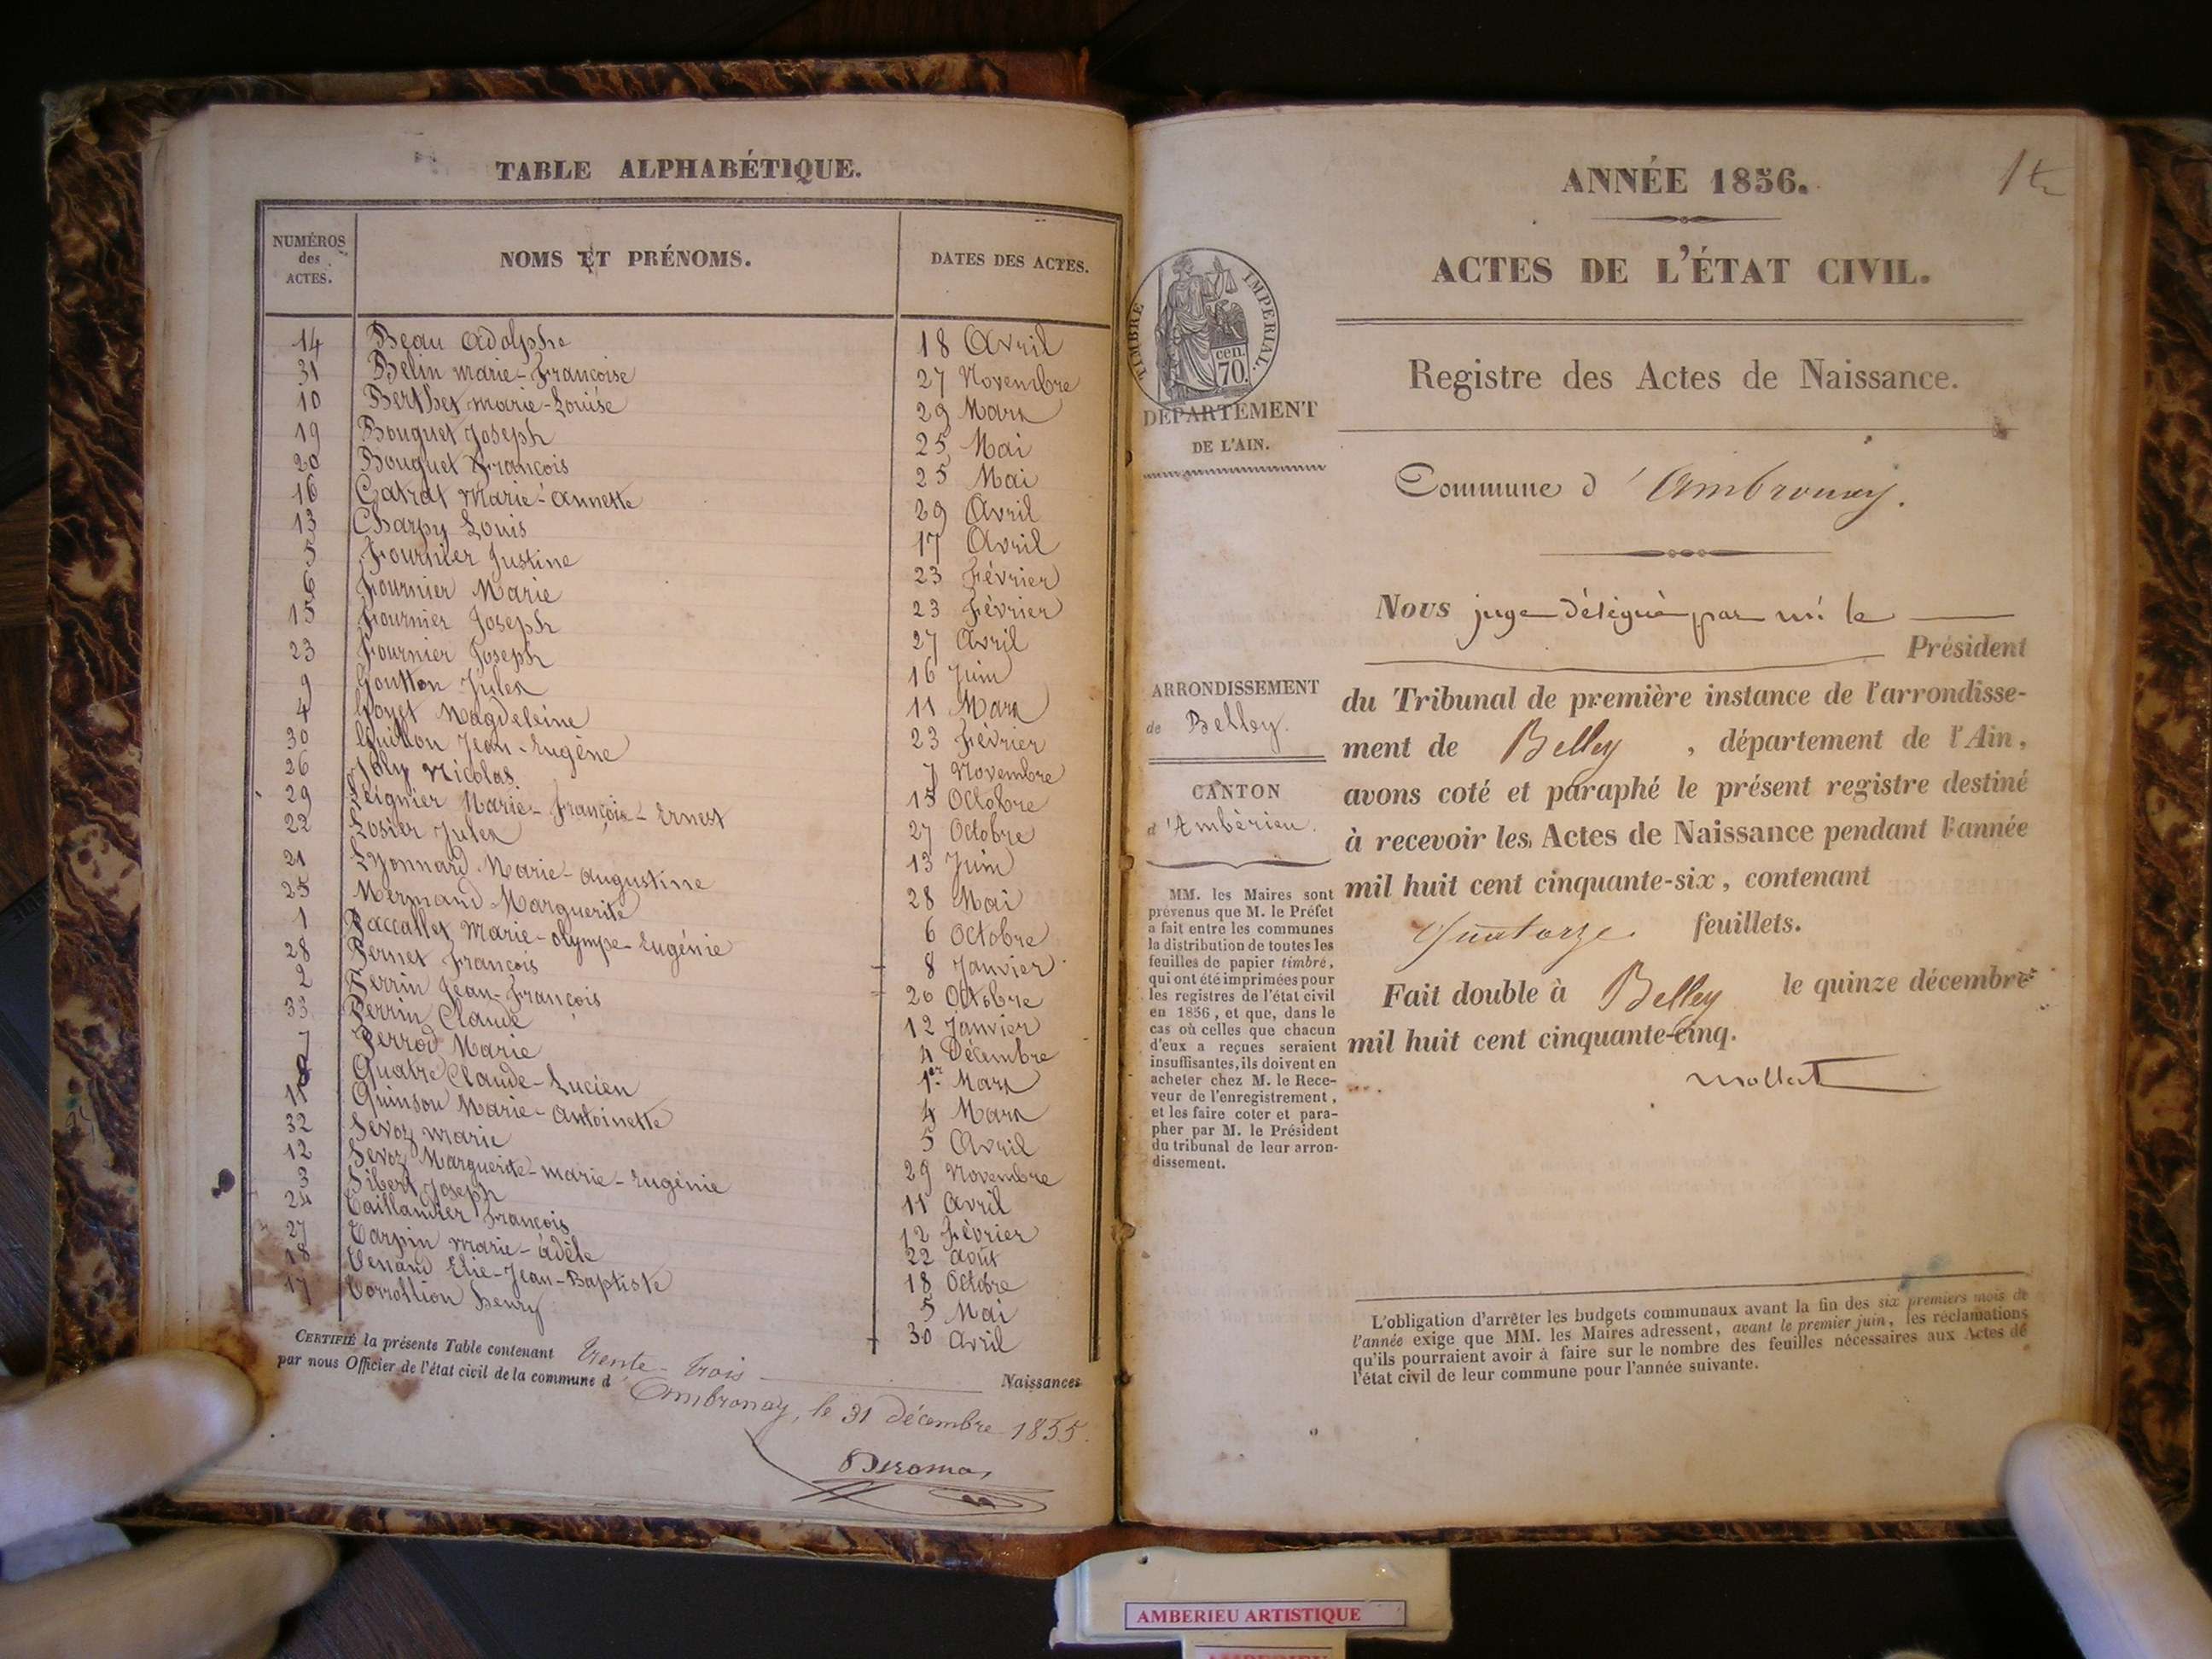 TABLE ALPHABÉTIQUE.
NUMÉROS des ACTES. NOMS ET PRÉNOMS. DATES DES ACTES.
14 Beau Adolphe 18 Avril
31 Belin Marie-Françoise 27 Novembre
10 Berthet Marie-Louise 29 Mars
19 Bouguet Joseph 25 Mai
20 Bouguet François 25 Mai
16 Catrat Marie-Annette 29 Avril
13 Charpy Louis 17 Avril
5 Fournier Justine 23 Février
6 Fournier Marie 23 Février
15 Fournier Joseph 27 Avril
23 Fournier Joseph 16 Juin
9 Goutton Jules 11 Mars
4 Goyet Magdeleine 23 Février
30 Guillon Jean-Eugène 7 Novembre
26 Joly Nicolas 15 Octobre
29 Leignier Marie-François-Ernest 27 Octobre
22 Losier Jules 13 Juin
21 Lyonnard Marie-Augustine 28 Mai
25 Mermand Marguerite 6 Octobre
1 Paccallet Marie-Olympe-Eugénie 8 Janvier
28 Pernet François 20 Octobre
2 Perrin Jean-François 12 Janvier
33 Perrin Claude 4 Décembre
7 Perrod Marie 1er Mars
8 Quatre Claude-Lucien 4 Mars
11 Quinson Marie-Antoinette 5 Avril
32 Sevoz Marie 29 Novembre
12 Sevoz Marguerite-Marie-Eugénie 11 Avril
3 Sibert Joseph 12 Février
24 Taillandier François 22 Août
27 Tarpin Marie-Adèle 18 Octobre
18 Tenand Elie-Jean-Baptiste 5 Mai
17 Torrollion Henry 30 Avril
CERTIFIÉ la présente Table contenant Trente-trois Naissances
par nous Officier de l'état civil de la commune d'Ambronay, le 31 décembre 1855.
ANNÉE 1856.
ACTES DE L'ÉTAT CIVIL.
TIMBRE IMPERIAL.
cen.
70.
DÉPARTEMENT
DE L'AIN.
Registre des Actes de Naissance.
Commune d'Ambronay.
ARRONDISSEMENT
de Belley.
CANTON
d'Ambérieu.
MM. les Maires sont
prévenus que M. le Préfet
a fait entre les communes
la distribution de toutes les
feuilles de papier timbré,
qui ont été imprimées pour
les registres de l'état civil
en 1856, et que, dans le
cas où celles que chacun
d'eux a reçues seraient
insuffisantes, ils doivent en
acheter chez M. le Rece-
veur de l'enregistrement,
et les faire coter et para-
pher par M. le Président
du tribunal de leur arron-
dissement.
Nous juge délégué par mr le
Président
du Tribunal de première instance de l'arrondisse-
ment de Belley, département de l'Ain,
avons coté et paraphé le présent registre destiné
à recevoir les Actes de Naissance pendant l'année
mil huit cent cinquante-six, contenant
Quatorze feuillets.
Fait double à Belley le quinze décembre
mil huit cent cinquante-cinq.
L'obligation d'arrêter les budgets communaux avant la fin des six premiers mois de
l'année exige que MM. les Maires adressent, avant le premier juin, les réclamations
qu'ils pourraient avoir à faire sur le nombre des feuilles nécessaires aux Actes de
l'état civil de leur commune pour l'année suivante.
AMBERIEU ARTISTIQUE